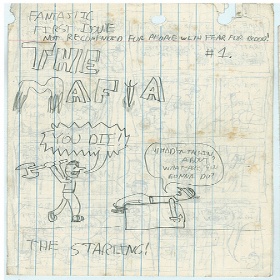 FANTASTIC
FIRST ISSUE
NOT RECOMENDED FOR PEOPLE WITH FEAR FOR BLOOD!
#1.
THE
MAFIA
YOU DIE!
WHAD'YA THINK
ABOUT
WHAT YOU'RE
GONNA DO?
THE STARLING!